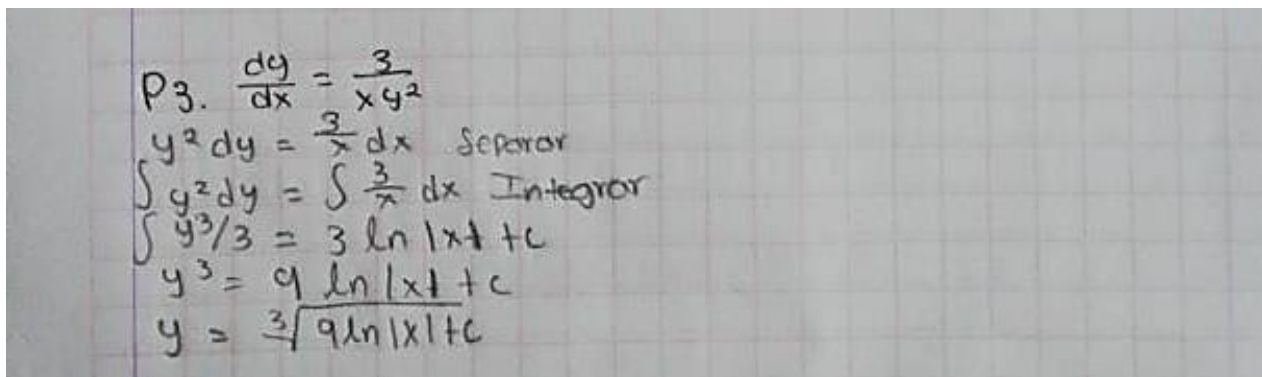 P3. dy/dx = 3/xy²
y² dy = 3/x dx Separar
∫ y² dy = ∫ 3/x dx Integrar
∫ y³/3 = 3 ln |x| + c
y³ = 9 ln |x| + c
y = ∛(9 ln |x| + c)